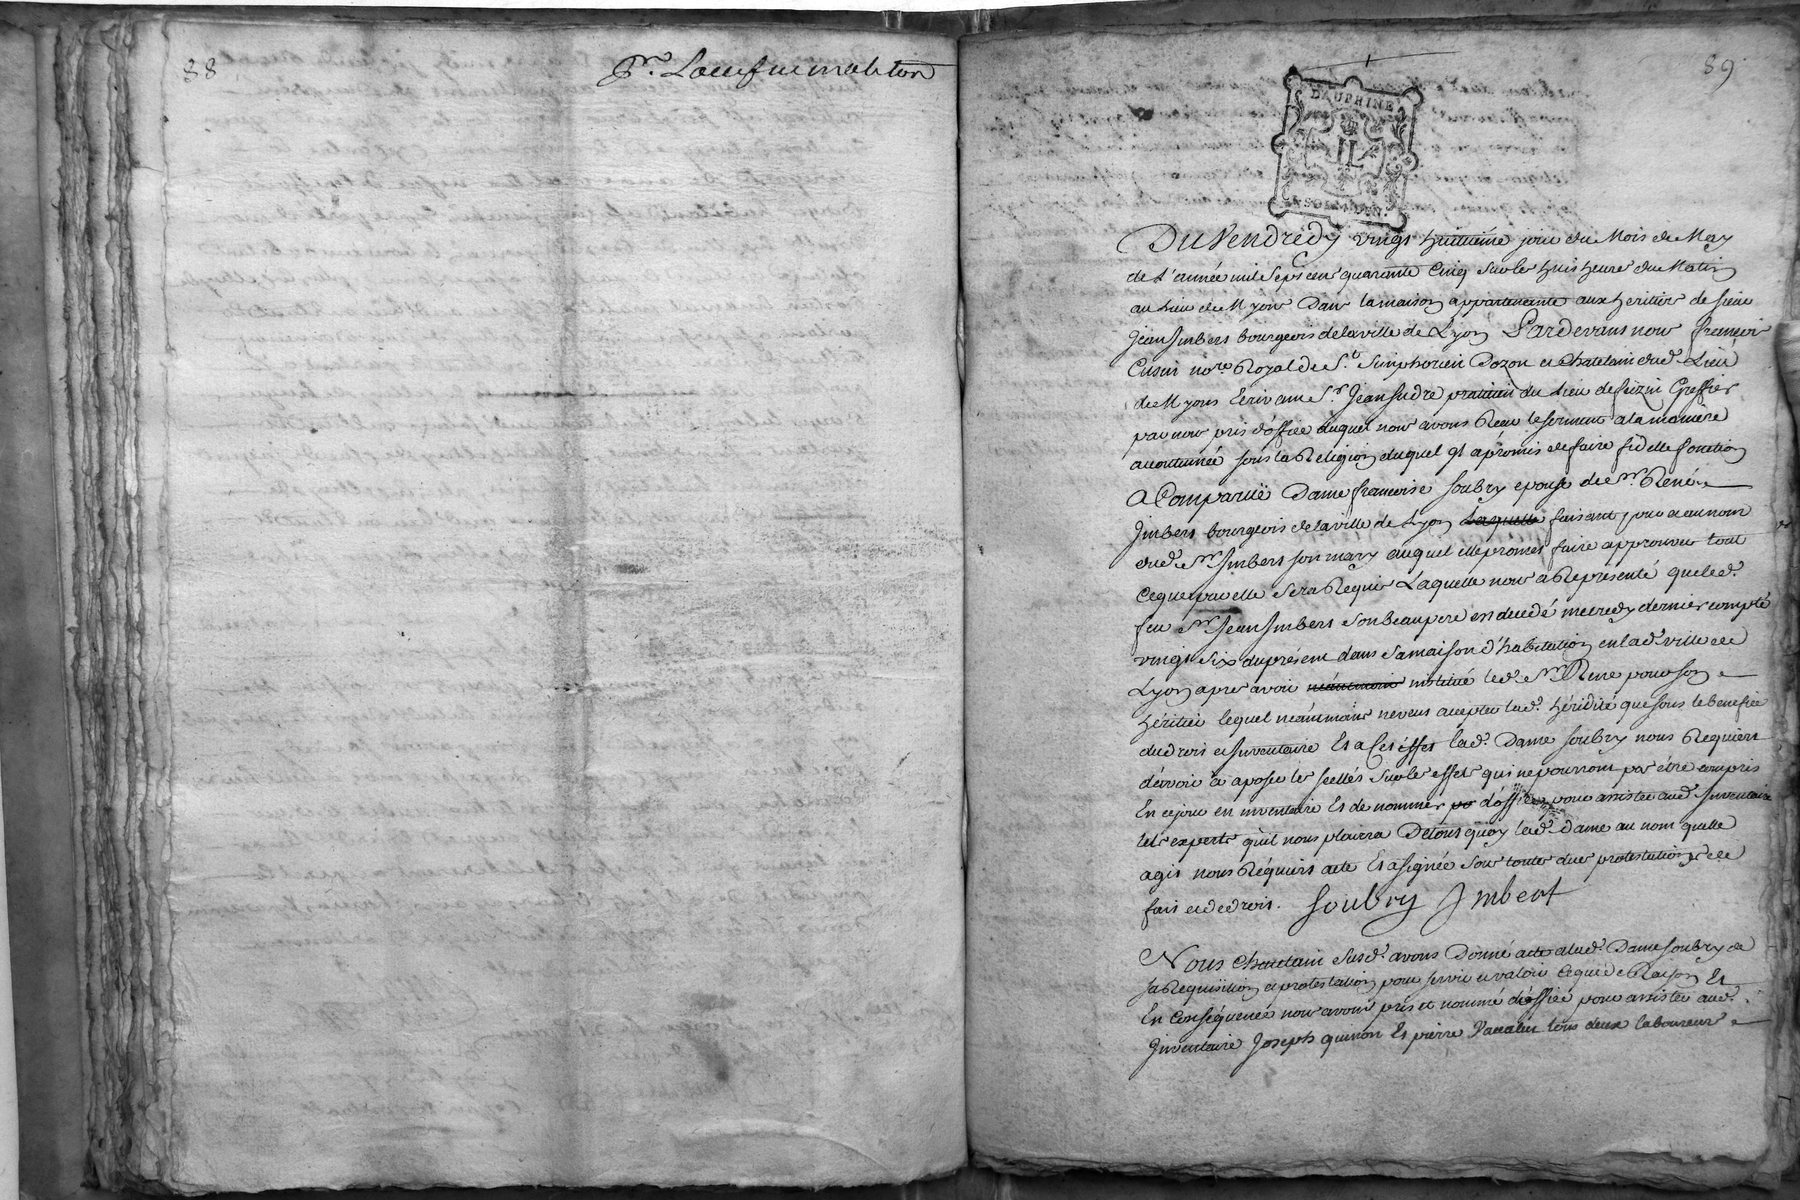 88
89
DAUPHINÉ
Du Vendredy vingt huitieme jour du Mois de May
de L'année mil sept cent quarante Cinq sur les huit heures du Matin
au Lieu de Myons Dans la maison appartenante aux heritiers de sieur
Jean Jmbert bourgeois de la ville de Lyon Pardevant nous françois
Cusin no.re Royal de S.t Simphorien Dozon et Chatelain dud. Lieu
de Myons Ecrivant S.r Jean Sudre praticien du Lieu de feizin Greffier
par nous pris d'office duquel nous avons Reçu le serment a la maniere
accoutumée sous la Religion duquel Jl a promis de faire fidelle fonction
A Comparüe Dame francoise Soubry epouse de M.r René
Jmbert bourgeois de la ville de Lyon Laquelle faisant pour et au nom
dud. M.r Jmbert son mary auquel elle promet faire approuver tout
Ceque par elle sera Requis Laquelle nous a Représenté que led.
feu M.r Jean Jmbert son beaupere est decedé mecredy dernier compté
vingt six du présent dans sa maison d'habitation en lad. ville de
Lyon apres avoir néantmoins institué led. M.r Rene pour son
héritier lequel neantmoins ne veut accepter lad. hérédité que sous le benefice
du droit et Jnventaire Et a Ces éffet lad. Dame Soubry nous Requiert
d'avoir a aposer les scellés sur les effets qui ne pourront pas être compris
En ce jour en inventaire Et de nommer po d'office pour assister aud. Jnventaire
tels experts quil nous plairra De tout quoy lad. Dame au nom quelle
agit nous Réquiert acte Et a signée sous toutes dues protestations de
fait et de droit. Soubry Jmbert
Nous Chatelain susd. avons Donné acte a lad. Dame Soubry de
sa Requisition et protestation pour servir et valoir Ceque de Raison Et
En Conséquence nous avons pris et nommé d'office pour assister aud.
Jnventaire Joseph quinon Et pierre Vacalin tous deux laboureurs